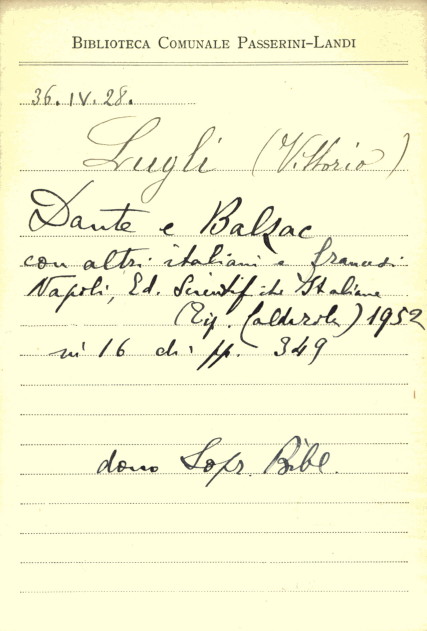 BIBLIOTECA COMUNALE PASSERINI-LANDI
36.IV.28.
Lugli (Vittorio)
Dante e Balzac
con altri italiani e francesi
Napoli, Ed. Scientifiche Italiane
(Tip. Calderola) 1952
in 16 di pp. 349
dono Sopr. Bibl.